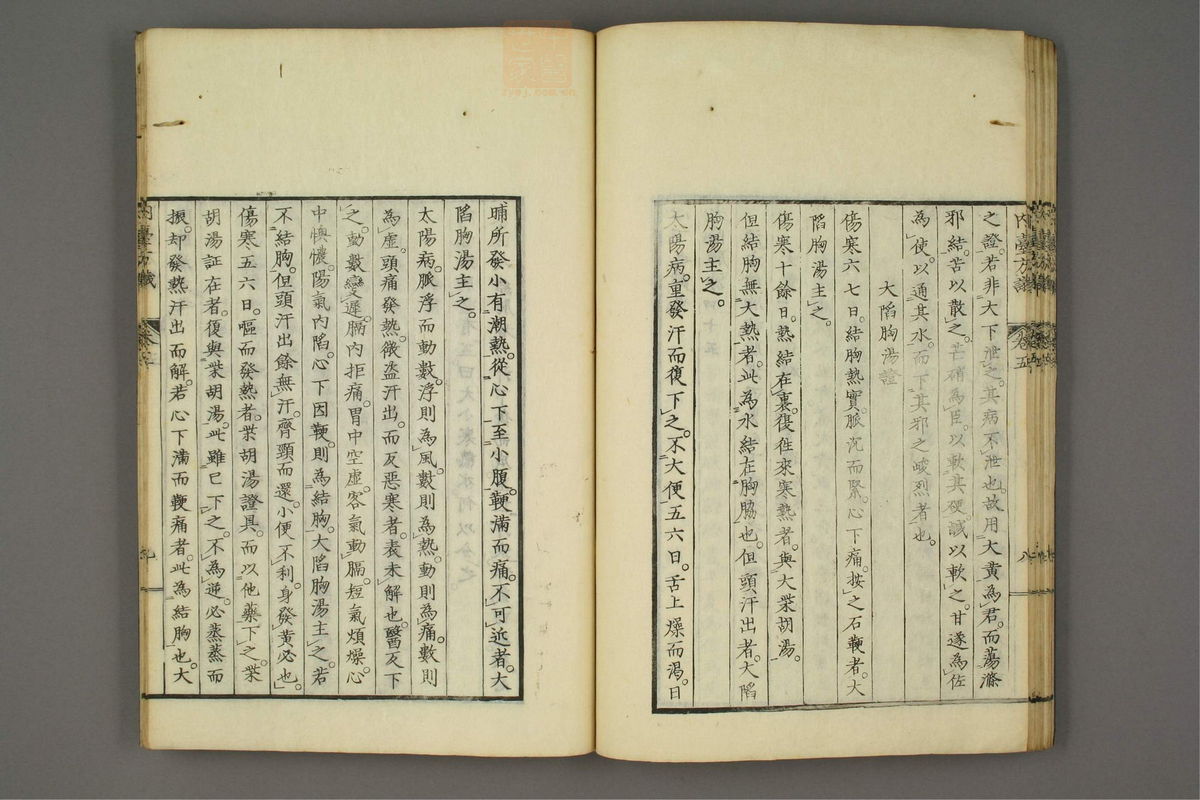 之證。若非大下泄之。其病不泄也。故用大黄為君。而蕩滌
邪結。苦以散之。芒硝為臣。以軟其硬。鹹以軟之。甘遂為佐
為使。以通其水。而下其邪之峻烈者也。
大陷胸湯證
傷寒六七日。結胸熱實。脈沉而緊。心下痛。按之石鞕者。大
陷胸湯主之。
傷寒十餘日。熱結在裏。復徃來寒熱者。與大柴胡湯。
但結胸無大熱者。此為水結在胸脇也。但頭汗出者。大陷
胸湯主之。
太陽病。重發汗而復下之。不大便五六日。舌上燥而渴。日
晡所發小有潮熱。從心下至小腹。鞕滿而痛。不可近者。大
陷胸湯主之。
太陽病。脈浮而動數。浮則為風。數則為熱。動則為痛。數則
為虛。頭痛發熱。微盜汗出。而反惡寒者。表未解也。醫反下
之。動數變遲。膈內拒痛。胃中空虛。客氣動膈。短氣煩燥。心
中懊憹。陽氣內陷。心下因鞕。則為結胸。大陷胸湯主之。若
不結胸。但頭汗出餘無汗。齊頸而還。小便不利。身發黄必也。
傷寒五六日。嘔而發熱者。柴胡湯證具。而以他藥下之。柴
胡湯証在者。復與柴胡湯。此雖已下之。不為逆。必蒸蒸而
振。却發熱汗出而解。若心下滿而鞕痛者。此為結胸也。大
內臺方議 卷五 八